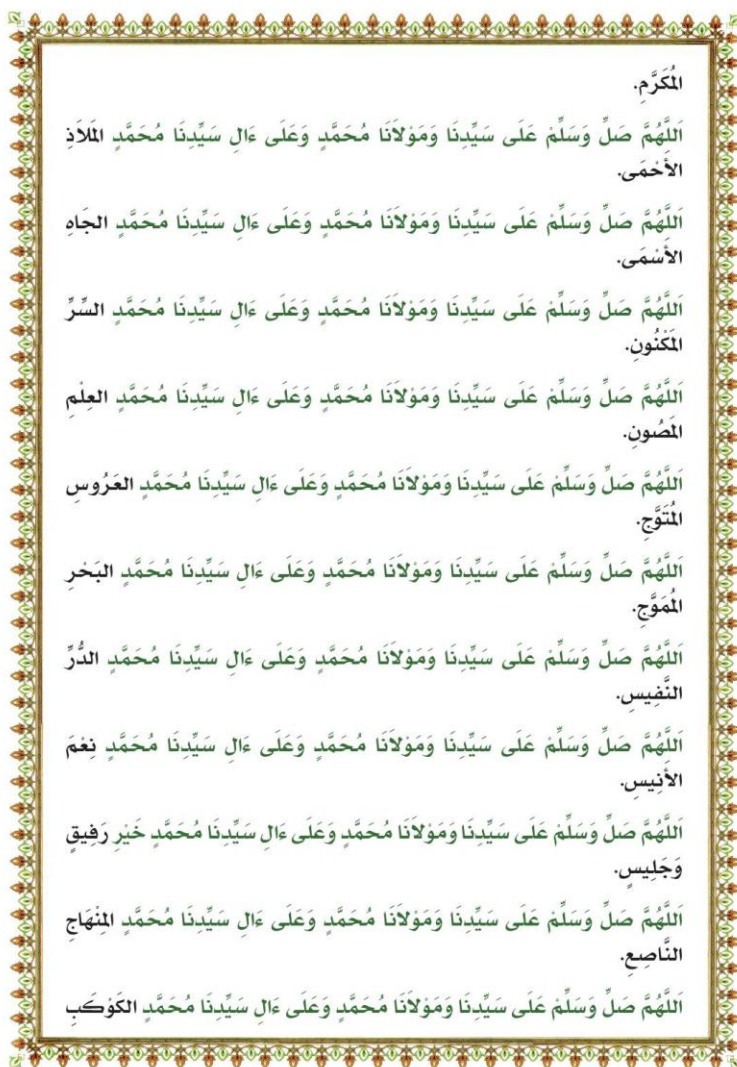 المُكَرَّمِ.
اَللَّهُمَّ صَلِّ وَسَلِّمْ عَلَى سَيِّدِنَا وَمَوْلَانَا مُحَمَّدٍ وَعَلَى ءَالِ سَيِّدِنَا مُحَمَّدٍ المَلَاذِ
الأَحْمَى.
اَللَّهُمَّ صَلِّ وَسَلِّمْ عَلَى سَيِّدِنَا وَمَوْلَانَا مُحَمَّدٍ وَعَلَى ءَالِ سَيِّدِنَا مُحَمَّدٍ الجَاهِ
الأَسْمَى.
اَللَّهُمَّ صَلِّ وَسَلِّمْ عَلَى سَيِّدِنَا وَمَوْلَانَا مُحَمَّدٍ وَعَلَى ءَالِ سَيِّدِنَا مُحَمَّدٍ السِّرِّ
المَكْنُونِ.
اَللَّهُمَّ صَلِّ وَسَلِّمْ عَلَى سَيِّدِنَا وَمَوْلَانَا مُحَمَّدٍ وَعَلَى ءَالِ سَيِّدِنَا مُحَمَّدٍ العِلْمِ
المَصُونِ.
اَللَّهُمَّ صَلِّ وَسَلِّمْ عَلَى سَيِّدِنَا وَمَوْلَانَا مُحَمَّدٍ وَعَلَى ءَالِ سَيِّدِنَا مُحَمَّدٍ العَرُوسِ
المُتَوَّجِ.
اَللَّهُمَّ صَلِّ وَسَلِّمْ عَلَى سَيِّدِنَا وَمَوْلَانَا مُحَمَّدٍ وَعَلَى ءَالِ سَيِّدِنَا مُحَمَّدٍ البَحْرِ
المُمَوَّجِ.
اَللَّهُمَّ صَلِّ وَسَلِّمْ عَلَى سَيِّدِنَا وَمَوْلَانَا مُحَمَّدٍ وَعَلَى ءَالِ سَيِّدِنَا مُحَمَّدٍ الدُّرِّ
النَّفِيسِ.
اَللَّهُمَّ صَلِّ وَسَلِّمْ عَلَى سَيِّدِنَا وَمَوْلَانَا مُحَمَّدٍ وَعَلَى ءَالِ سَيِّدِنَا مُحَمَّدٍ نِعْمَ
الأَنِيسِ.
اَللَّهُمَّ صَلِّ وَسَلِّمْ عَلَى سَيِّدِنَا وَمَوْلَانَا مُحَمَّدٍ وَعَلَى ءَالِ سَيِّدِنَا مُحَمَّدٍ خَيْرِ رَفِيقٍ
وَجَلِيسٍ.
اَللَّهُمَّ صَلِّ وَسَلِّمْ عَلَى سَيِّدِنَا وَمَوْلَانَا مُحَمَّدٍ وَعَلَى ءَالِ سَيِّدِنَا مُحَمَّدٍ المِنْهَاجِ
النَّاصِعِ.
اَللَّهُمَّ صَلِّ وَسَلِّمْ عَلَى سَيِّدِنَا وَمَوْلَانَا مُحَمَّدٍ وَعَلَى ءَالِ سَيِّدِنَا مُحَمَّدٍ الكَوْكَبِ